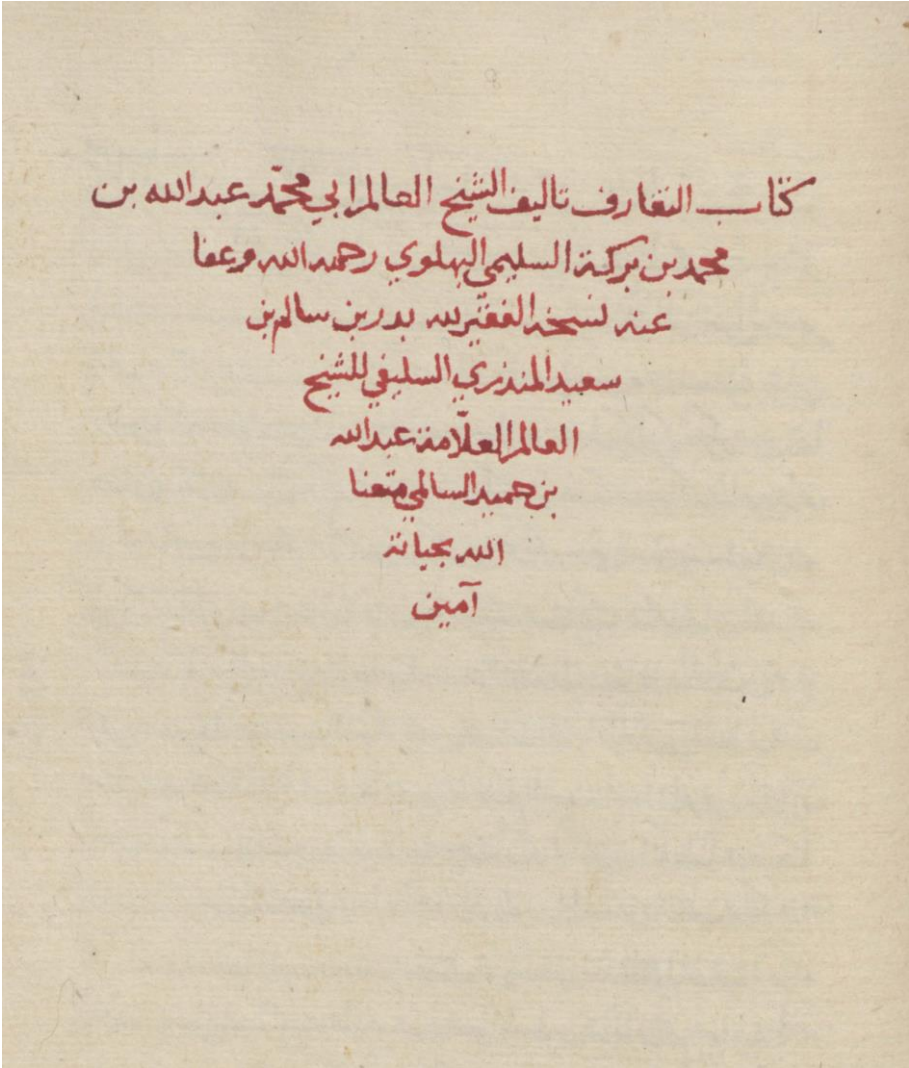 كتاب التعارف تاليف الشيخ العالم ابي محمّد عبدالله بن
محمد بن بركة السليمي البهلوي رحمه الله وعفا
عنه نسخه الفقير لله بدر بن سالم بن
سعيد المنذري السليفي للشيخ
العالم العلّامة عبدالله
بن حميد السالمي متعنا
الله بحياته
آمين